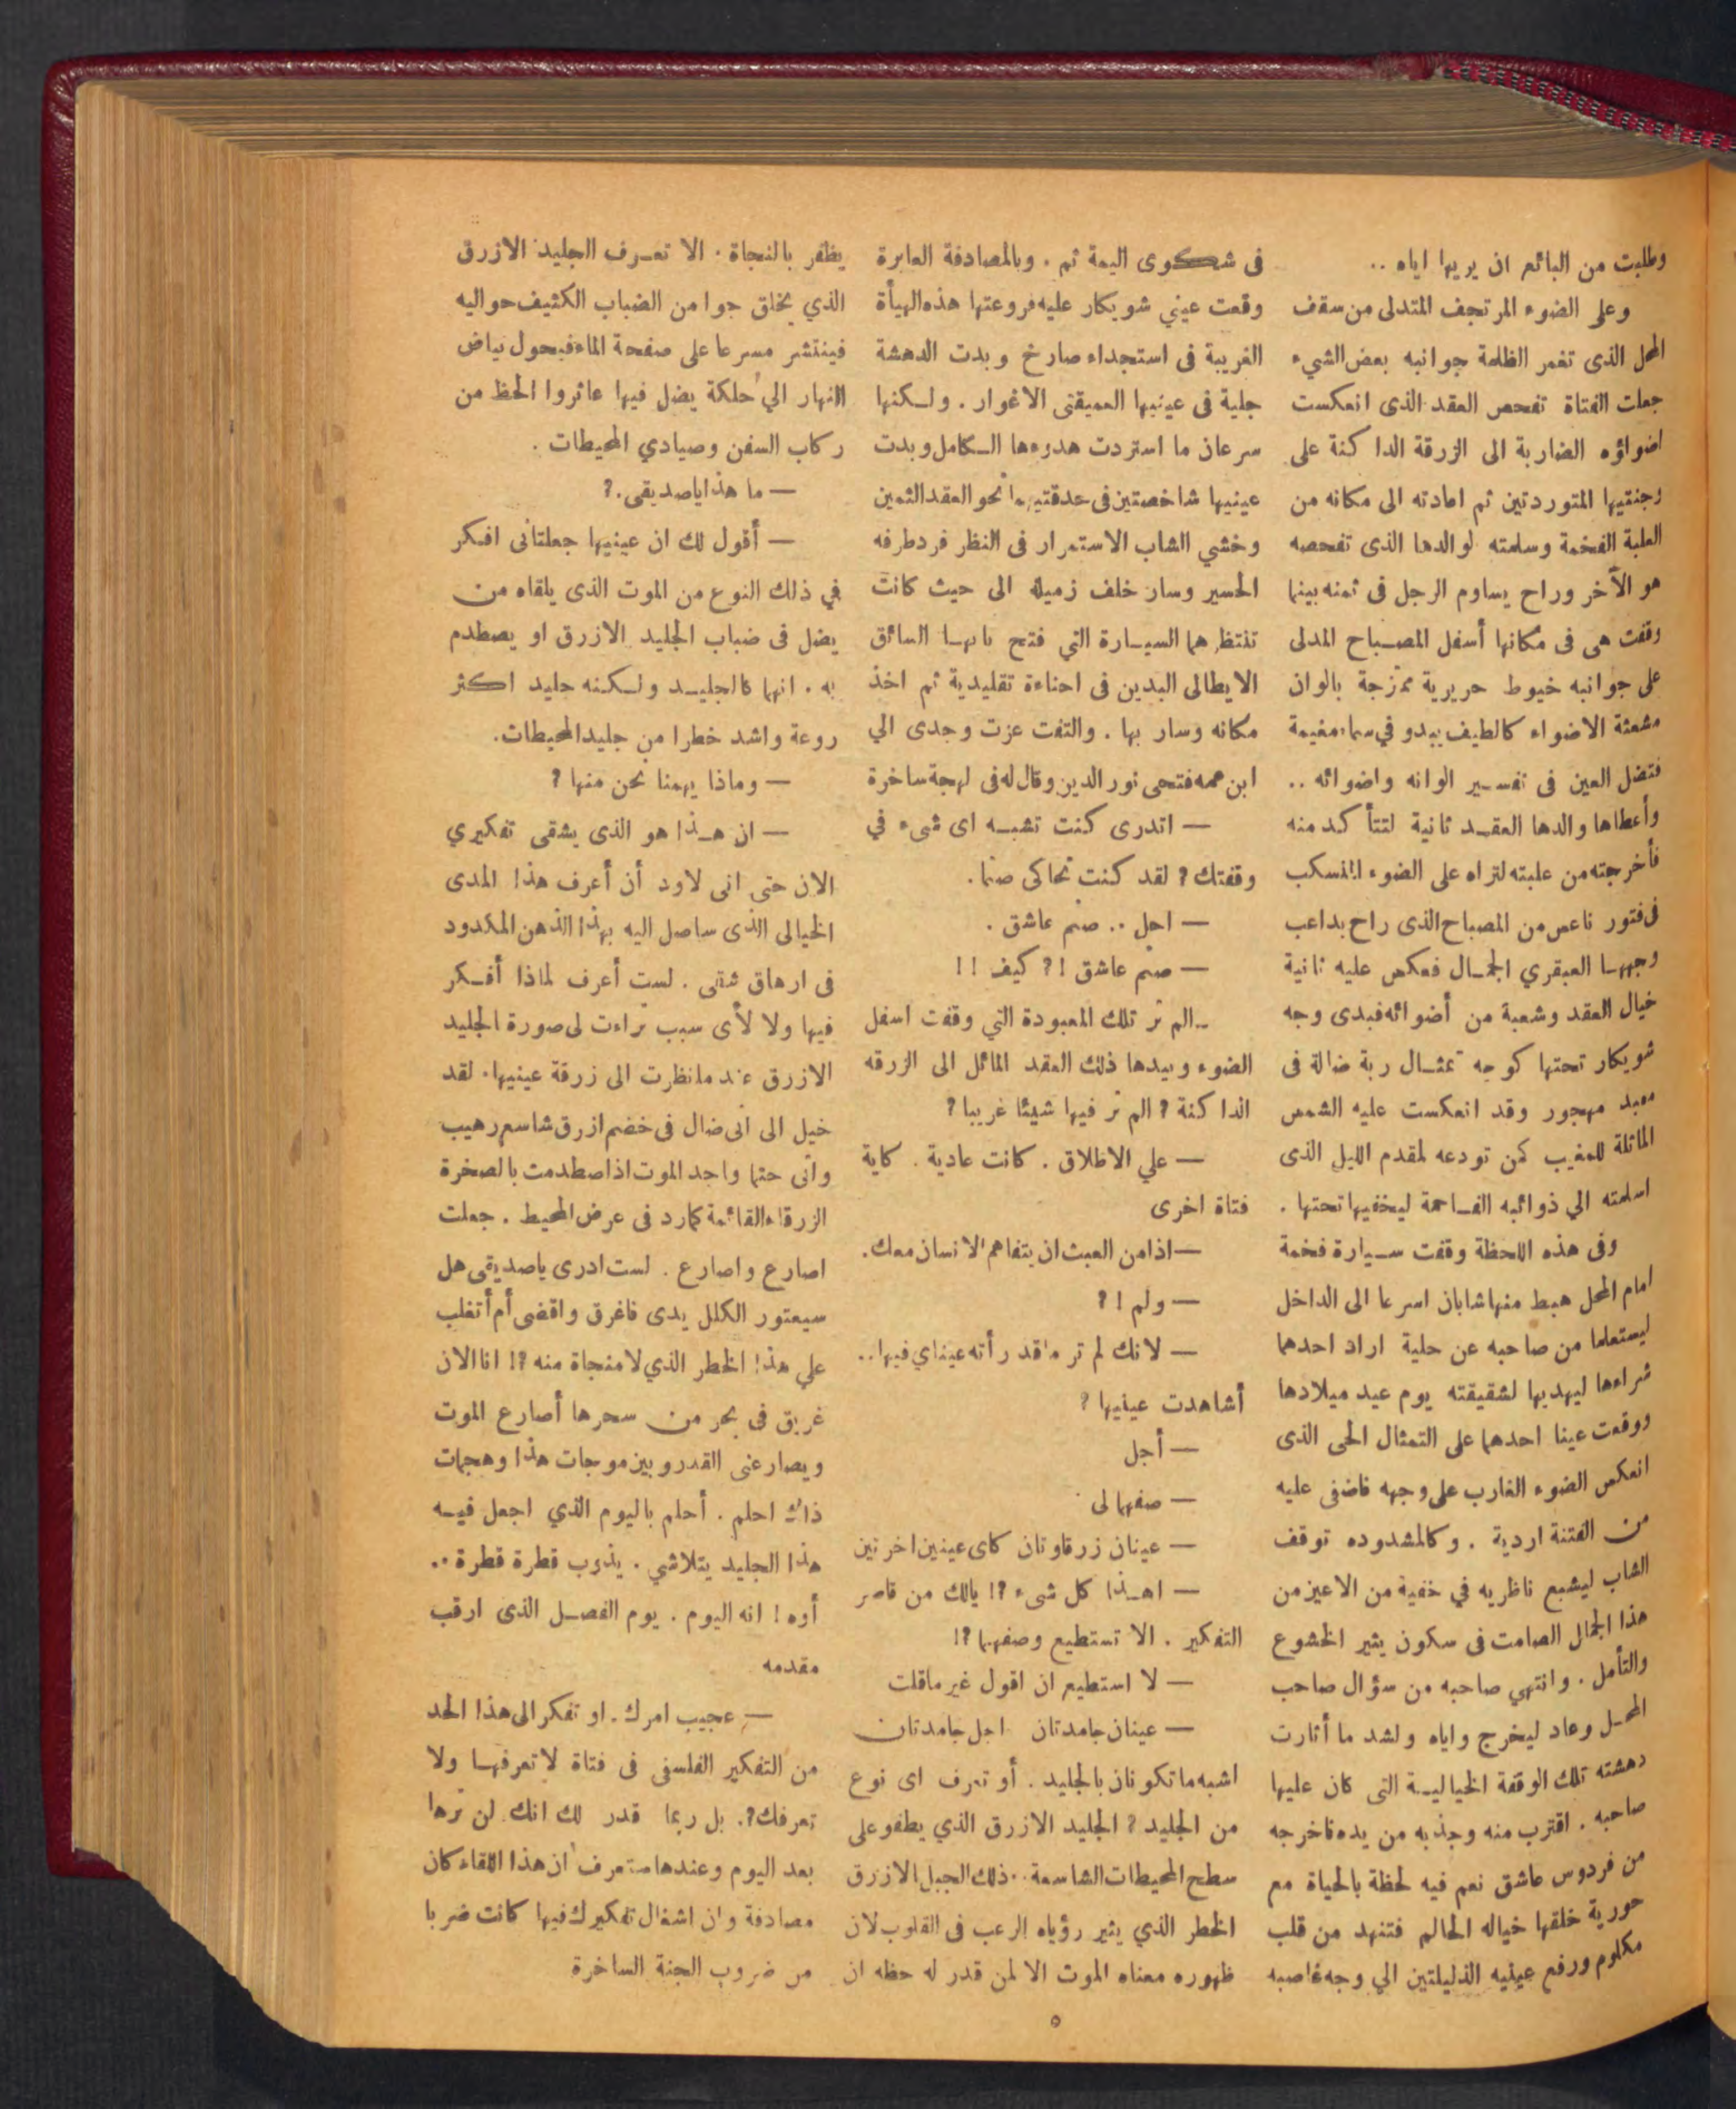 وطلبت من البائع ان يريها اياه ..
وعلى الضوء المرتجف المتدلى من سقف
المحل الذى تغمر الظلمة جوانبه بعض الشيء
جعلت الفتاة تفحص العقد الذى انعكست
اضواؤه الضاربة الى الزرقة الداكنة على
وجنتيها المتوردتين ثم اعادته الى مكانه من
العلبة الفخمة وسلمته لوالدها الذى تفحصه
هو الآخر وراح يساوم الرجل فى ثمنه بينما
وقفت هى فى مكانها أسفل المصباح المدلى
على جوانبه خيوط حريرية ممزجة بالوان
مشعثة الاضواء كالطيف يبدو في سماء مغيمة
فتضل العين فى تفسير الوانه واضوائه ..
وأعطاها والدها العقد ثانية لتتأكد منه
فأخرجته من علبته لتراه على الضوء المنسكب
فى فتور ناعس من المصباح الذى راح يداعب
وجهها العبقري الجمال فعكس عليه ثانية
خيال العقد وشعبة من أضوائه فبدى وجه
شويكار تحتها كوجه تمثال ربة ضالة فى
معبد مهجور وقد انعكست عليه الشمس
المائلة للمغيب كمن تودعه لمقدم الليل الذى
اسلمته الي ذوائبه الفاحمة ليخفيها تحتها .
وفى هذه اللحظة وقفت سيارة فخمة
امام المحل هبط منها شابان اسرعا الى الداخل
ليستعلما من صاحبه عن حلية اراد احدهما
شراءها ليهديها لشقيقته يوم عيد ميلادها
ووقعت عينا احدهما على التمثال الحى الذى
انعكس الضوء الغارب على وجهه فاضفى عليه
من الفتنة اردية . وكالمشدوده توقف
الشاب ليشبع ناظريه في خفية من الاعين من
هذا الجمال الصامت فى سكون يثير الخشوع
والتأمل . وانتهي صاحبه من سؤال صاحب
المحل وعاد ليخرج واياه ولشد ما أثارت
دهشته تلك الوقفة الخيالية التى كان عليها
صاحبه . اقترب منه وجذبه من يده فاخرجه
من فردوس عاشق نعم فيه لحظة بالحياة مع
حورية خلقها خياله الحالم فتنهد من قلب
مكلوم ورفع عينيه الذليلتين الي وجه غاصبه
فى شكوى اليمة ثم . وبالمصادفة العابرة
وقعت عيني شويكار عليه فروعتها هذه الهيأة
الغريبة فى استجداء صارخ وبدت الدهشة
جلية فى عينيها العميقتى الاغوار . ولكنها
سرعان ما استردت هدوءها الكامل وبدت
عينيها شاخصتين فى حدقتيهما نحو العقد الثمين
وخشي الشاب الاستمرار فى النظر فرد طرفه
الحسير وسار خلف زميله الى حيث كانت
تنتظرهما السيارة التي فتح بابها السائق
الايطالى البدين فى احناءة تقليدية ثم اخذ
مكانه وسار بها . والتفت عزت وجدى الي
ابن عمه فتحى نور الدين وقال له فى لهجة ساخرة
— اتدرى كنت تشبه اى شىء في
وقفتك ؟ لقد كنت تحاكى صنما .
— اجل .. صنم عاشق .
— صنم عاشق !؟ كيف !!
ـ الم تر تلك المعبودة التي وقفت اسفل
الضوء وبيدها ذلك العقد المائل الى الزرقه
الداكنة ؟ الم تر فيها شيئا غريبا ؟
— علي الاطلاق . كانت عادية . كاية
فتاة اخرى
— اذا من العبث ان يتفاهم الانسان معك .
— ولم !؟
— لانك لم تر ما قد رأته عيناي فيها ..
أشاهدت عينيها ؟
— أجل
— صفهما لى
— عينان زرقاوتان كاى عينين اخرتين
— اهذا كل شىء ؟! يالك من قاصر
التفكير . الا تستطيع وصفهما ؟!
— لا استطيع ان اقول غير ماقلت
— عينان جامدتان اجل جامدتان
اشبه ما تكونان بالجليد . أو تعرف اى نوع
من الجليد ؟ الجليد الازرق الذي يطفو على
سطح المحيطات الشاسعة .. ذلك الجبل الازرق
الخطر الذي يثير رؤياه الرعب فى القلوب لان
ظهوره معناه الموت الا لمن قدر له حظه ان
يظفر بالنجاة . الا تعرف الجليد الازرق
الذي يخلق جوا من الضباب الكثيف حواليه
فينتشر مسرعا على صفحة الماء فيحول بياض
النهار الي حلكة يضل فيها عاثروا الحظ من
ركاب السفن وصيادي المحيطات .
— ما هذا ياصديقى . ؟
— أقول لك ان عينيها جعلتانى افكر
في ذلك النوع من الموت الذى يلقاه من
يضل فى ضباب الجليد الازرق او يصطدم
به . انهما كالجليد ولكنه جليد اكثر
روعة واشد خطرا من جليد المحيطات .
— وماذا يهمنا نحن منها ؟
— ان هذا هو الذى يشقى تفكيري
الان حتى انى لاود أن أعرف هذا المدى
الخيالى الذى ساصل اليه بهذا الذهن المكدود
فى ارهاق شقى . لست أعرف لماذا أفكر
فيها ولا لأى سبب تراءت لى صورة الجليد
الازرق عندما نظرت الى زرقة عينيها . لقد
خيل الى انى ضال فى خضم ازرق شاسع رهيب
وانى حتما واجد الموت اذا صطدمت بالصخرة
الزرقاء القائمة كمارد فى عرض المحيط . جعلت
اصارع واصارع . لست ادرى ياصديقى هل
سيعتور الكلل يدى فاغرق واقضى أم أتغلب
علي هذا الخطر الذي لا منجاة منه ؟! انا الان
غريق فى بحر من سحرها أصارع الموت
ويصارعنى القدر وبين موجات هذا وهجمات
ذاك احلم . أحلم باليوم الذي اجعل فيه
هذا الجليد يتلاشي . يذوب قطرة قطرة ..
أوه ! انه اليوم . يوم الفصل الذى ارقب
مقدمه
— عجيب امرك . او تفكر الى هذا الحد
من التفكير الفلسفى فى فتاة لا تعرفها ولا
تعرفك ؟ . بل ربما قدر لك انك لن ترها
بعد اليوم وعندها ستعرف ان هذا اللقاء كان
مصادفة وان اشغال تفكيرك فيها كانت ضربا
من ضروب الجنة الساخرة
٥